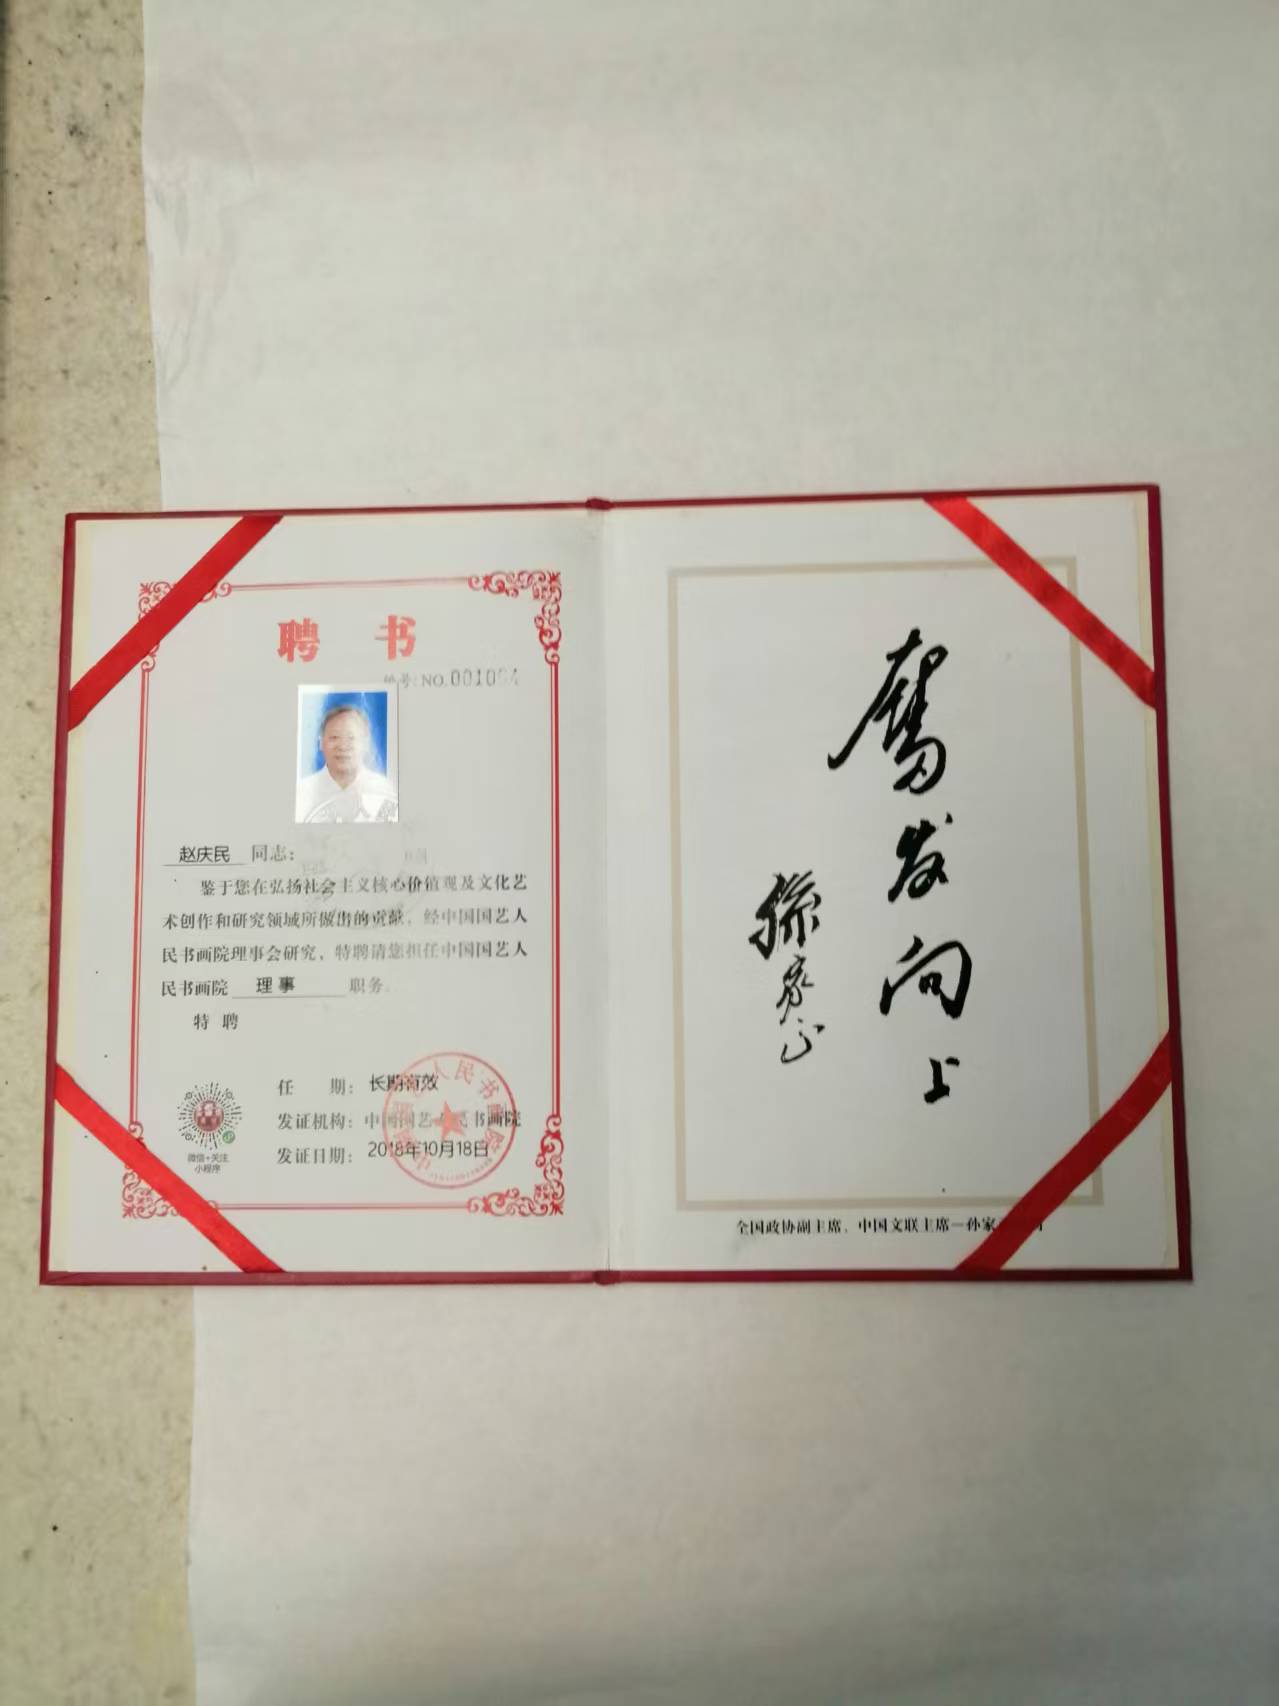 聘 书
编号: NO.001094
赵庆民 同志:
鉴于您在弘扬社会主义核心价值观及文化艺
术创作和研究领域所做出的贡献, 经中国国艺人
民书画院理事会研究, 特聘请您担任中国国艺人
民书画院 理事 职务.
特 聘
任 期: 长期有效
发证机构: 中国国艺人民书画院
发证日期: 2018年10月18日
微信+关注
小程序
奮发向上
孫家正
全国政协副主席、中国文联主席—孙家